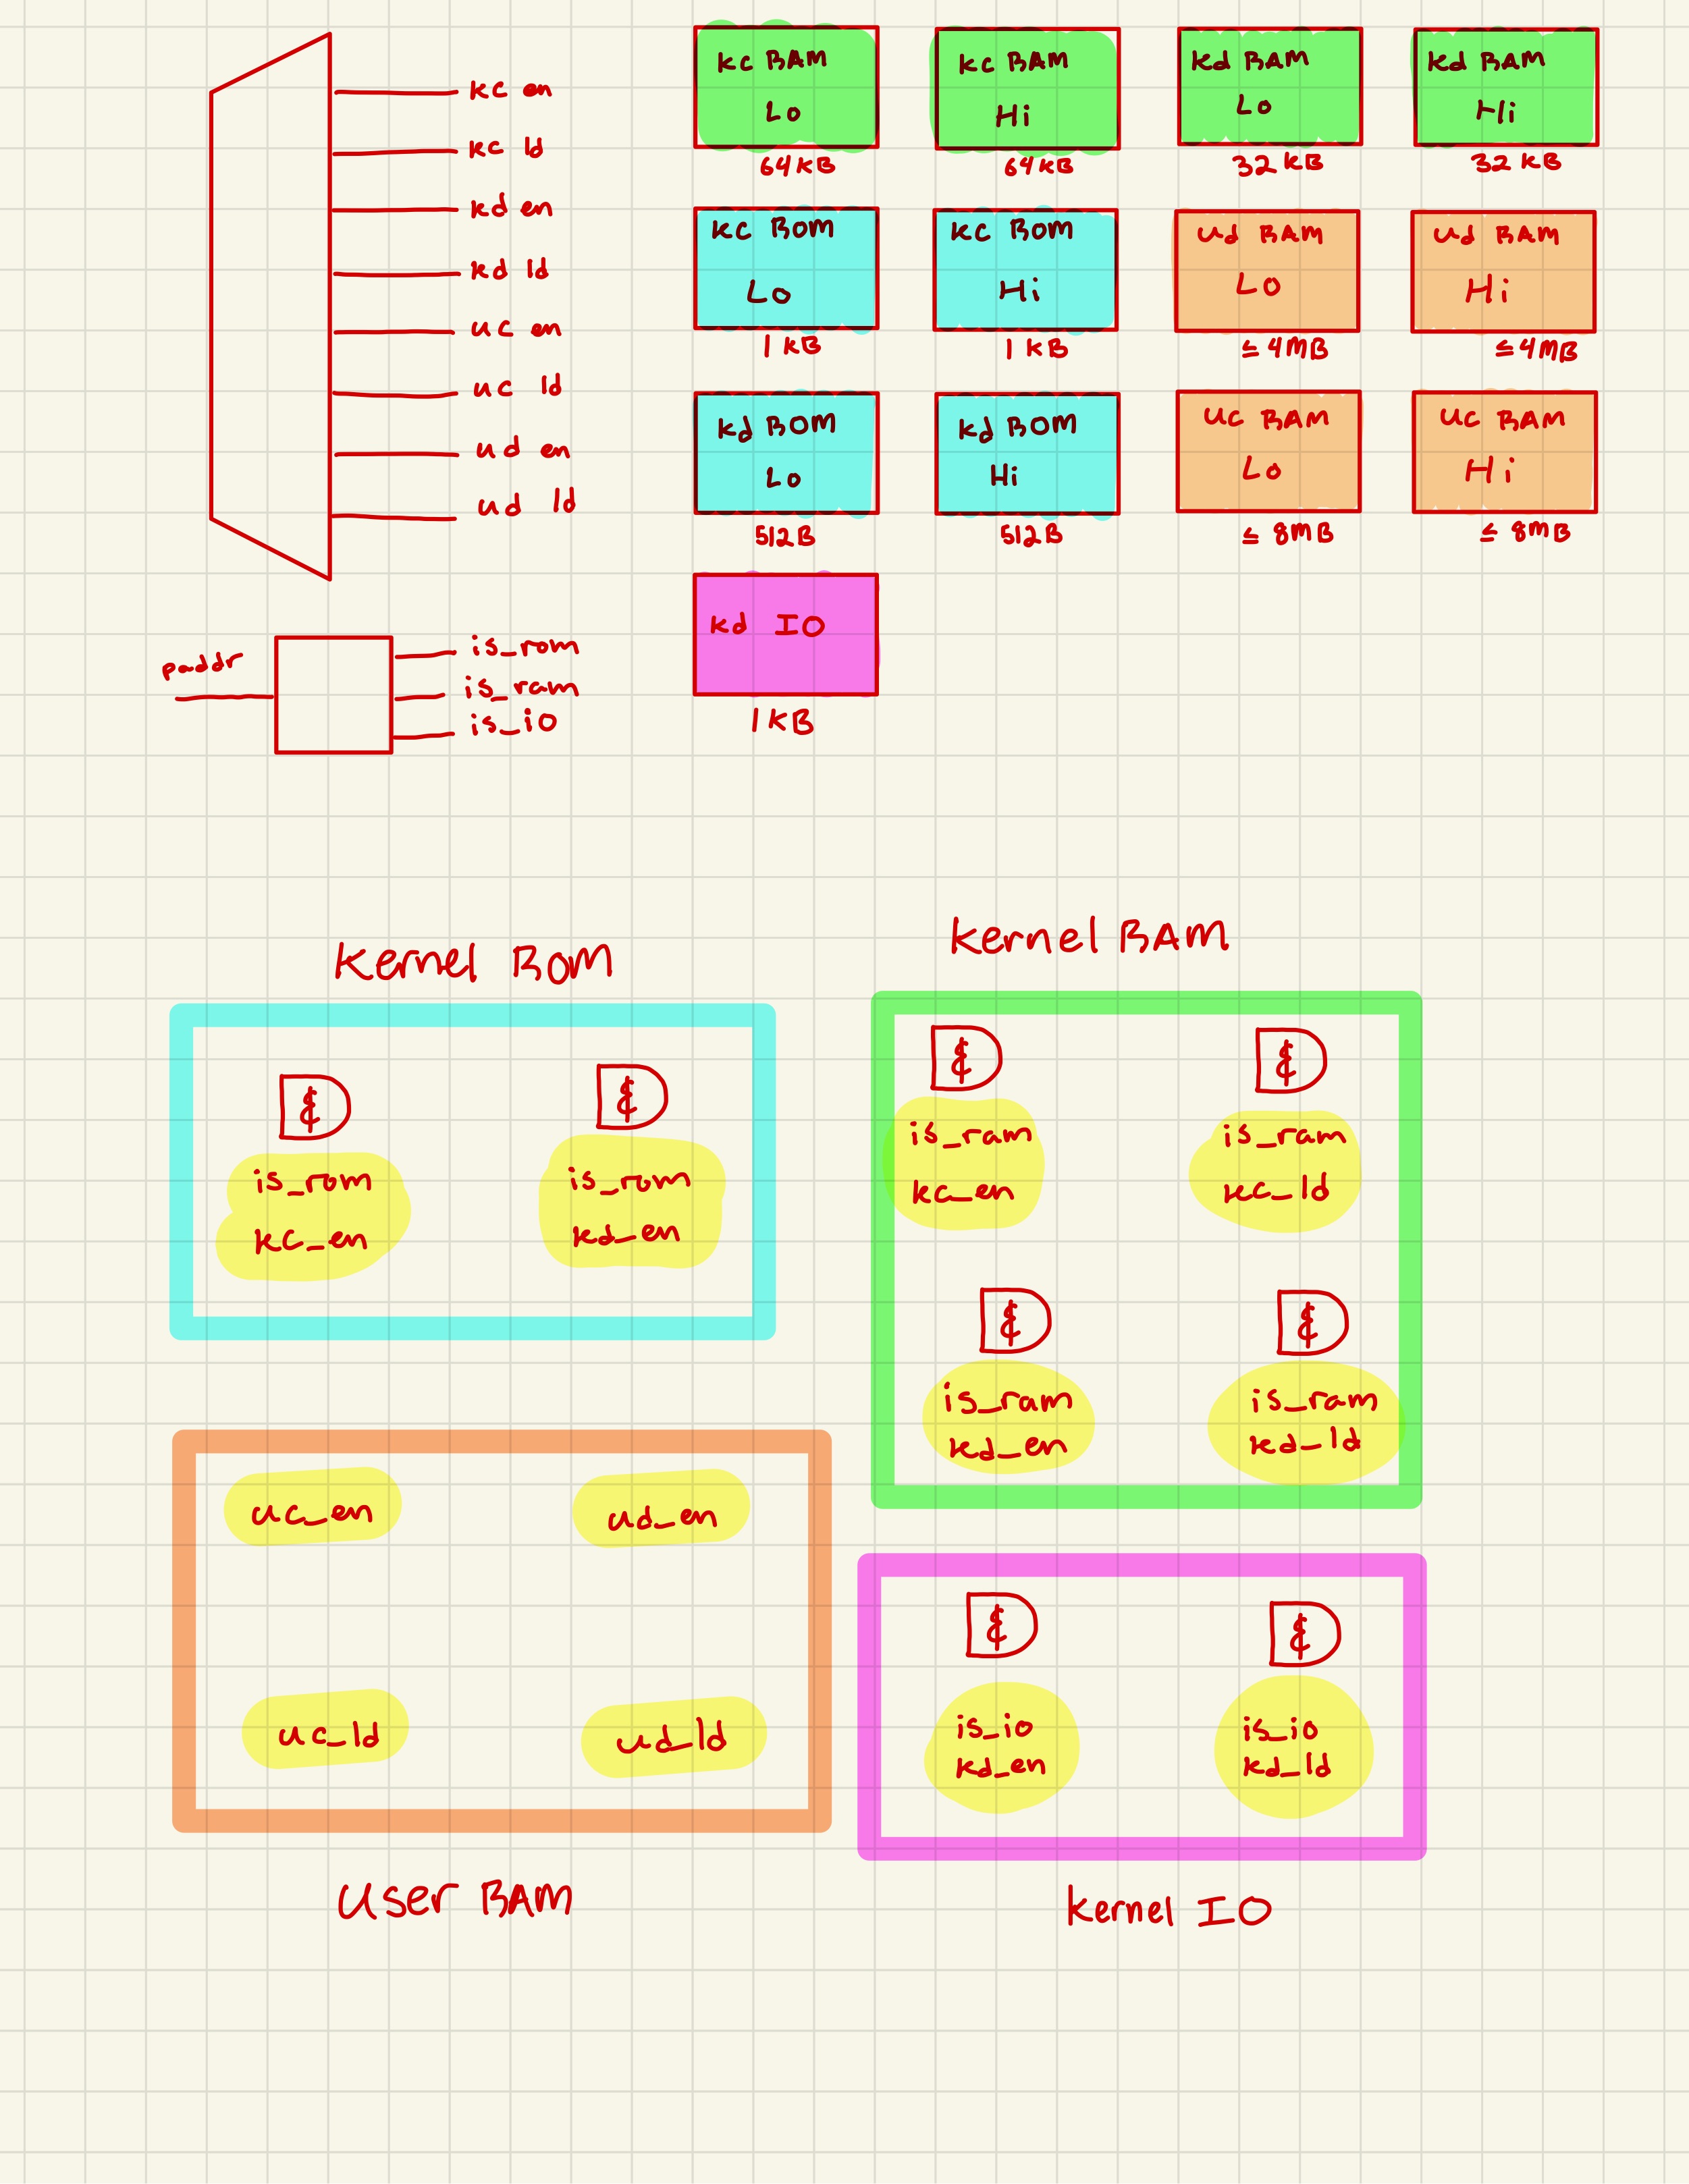 kc en
kc ld
kd en
kd ld
uc en
uc ld
ud en
ud ld
kc RAM
Lo
64kB
kc RAM
Hi
64kB
kd RAM
Lo
32kB
kd RAM
Hi
32kB
kc ROM
Lo
1kB
kc ROM
Hi
1kB
ud RAM
Lo
≤4MB
ud RAM
Hi
≤4MB
kd ROM
Lo
512B
kd ROM
Hi
512B
uc RAM
Lo
≤ 8MB
uc RAM
Hi
≤ 8MB
kd IO
1kB
paddr
is_rom
is_ram
is_io
Kernel ROM
&
is_rom
kc_en
&
is_rom
kd_en
Kernel RAM
&
is_ram
kc_en
&
is_ram
kc_ld
&
is_ram
kd_en
&
is_ram
kd_ld
uc_en
ud_en
uc_ld
ud_ld
User RAM
&
is_io
kd_en
&
is_io
kd_ld
kernel IO